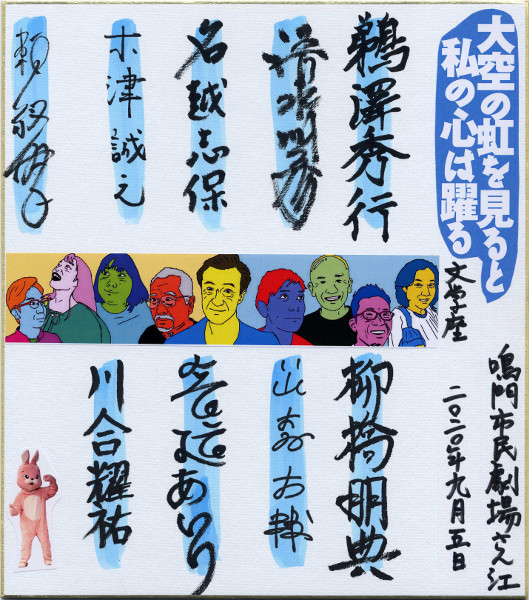 大空の虹を見ると
私の心は躍る
文学座
鳴門市民劇場さん江
二〇二〇年九月五日
鵜澤秀行
名越志保
木津誠之
柳橋朋典
山森大輔
音道あいり
川合耀祐